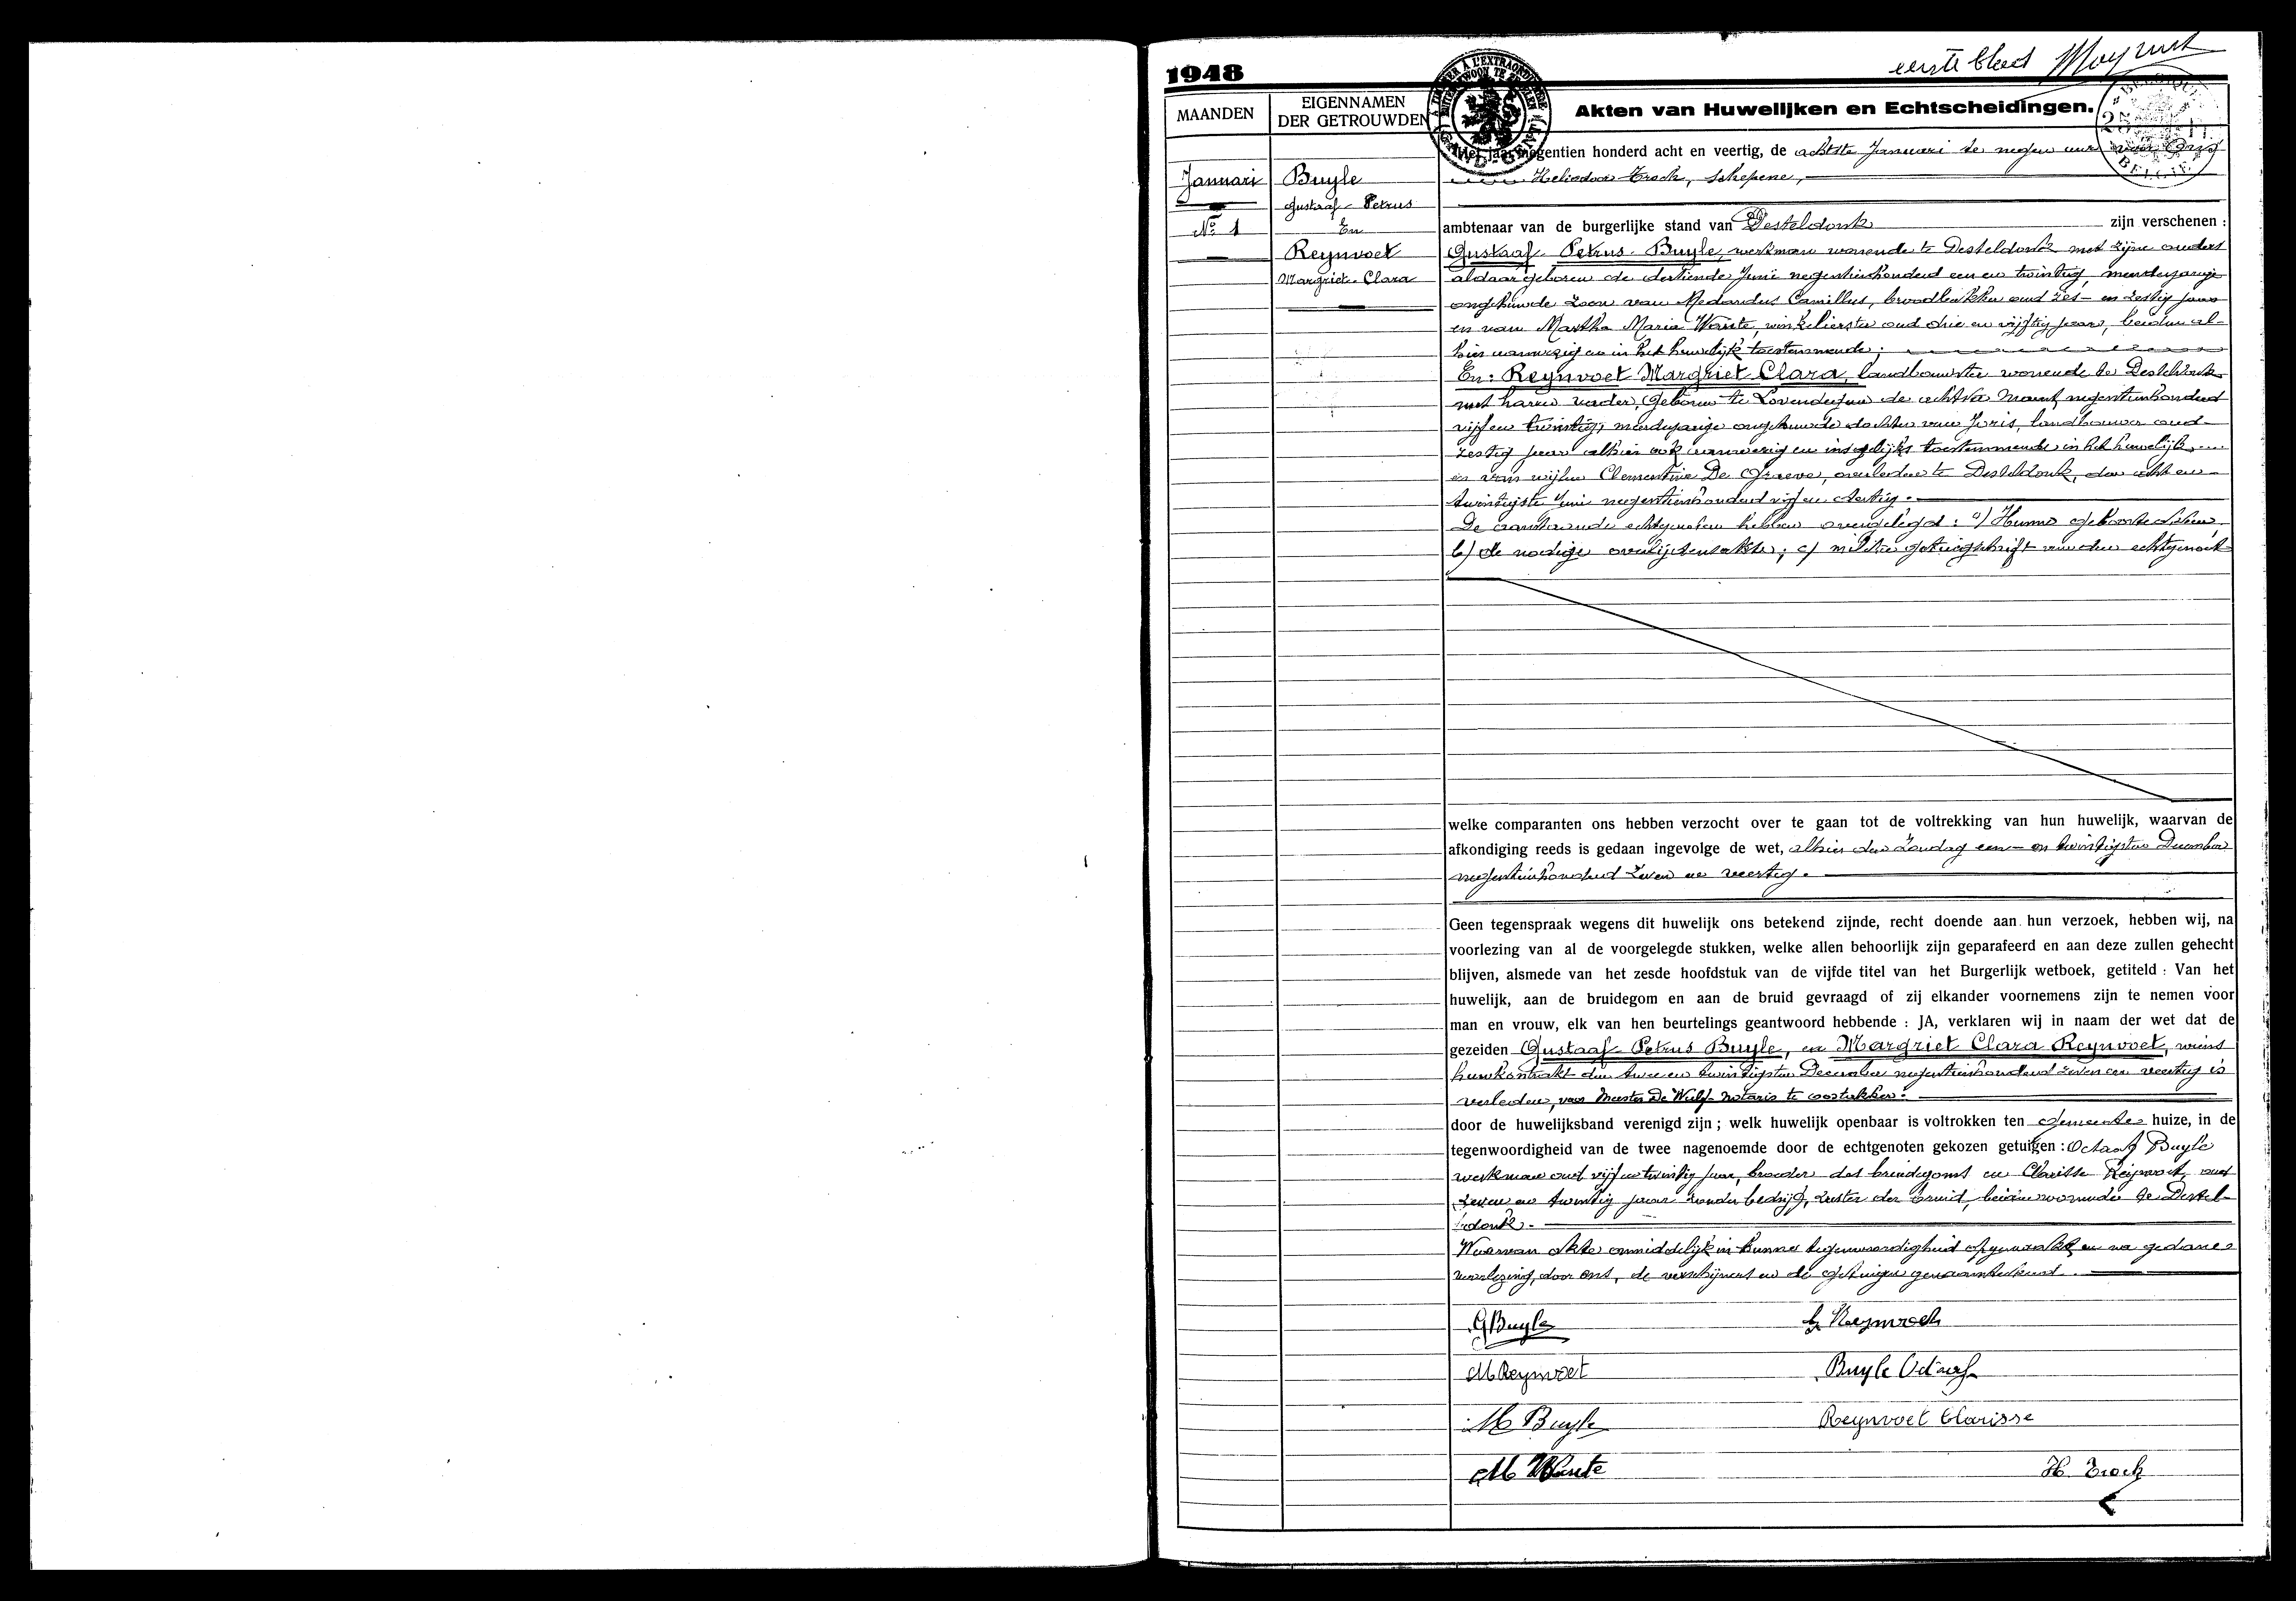 eerste blad
1948
MAANDEN
EIGENNAMEN
DER GETROUWDEN
Akten van Huwelijken en Echtscheidingen.
Het jaar negentien honderd acht en veertig, de achtste Januari te negen uur voor Ons
Heliodoor Trock, schepene,
Januari
Buyle
Gustaaf-Petrus
No 1
En
Reynvoet
Margriet-Clara
ambtenaar van de burgerlijke stand van Desteldonk zijn verschenen :
Gustaaf-Petrus-Buyle, werkman wonende te Desteldonk met zijne ouders
aldaar geboren de dertiende Juni negentienhonderd een en twintig, meerderjarige
ongehuwde zoon van Medardus Camillus, broodbakker oud zes- en zestig jaar
en van Martha Maria Wante, winkelierster oud drie en vijftig jaar, beiden al-
hier aanwezig en in het huwelijk toestemmende;
En: Reynvoet Margriet Clara, landbouwster wonende te Desteldonk
met haren vader, geboren te Lovendegem de achtste Maart negentienhonderd
vijf en twintig, meerderjarige ongehuwde dochter van Joris, landbouwer oud
zestig jaar alhier ook aanwezig en insgelijks toestemmende in het huwelijk
en van wijlen Clementine De Greve, overleden te Desteldonk, den acht en
twintigste Juni negentienhonderd vijf en dertig.
De aanstaande echtgenoten hebben overgelegd: a) Hunne geboorteakten,
b) de nodige overlijdensakte; c) militie getuigschrift van den echtgenoot
welke comparanten ons hebben verzocht over te gaan tot de voltrekking van hun huwelijk, waarvan de
afkondiging reeds is gedaan ingevolge de wet, alhier den zondag een- en twintigsten December
negentienhonderd zeven en veertig.
Geen tegenspraak wegens dit huwelijk ons betekend zijnde, recht doende aan hun verzoek, hebben wij, na
voorlezing van al de voorgelegde stukken, welke allen behoorlijk zijn geparafeerd en aan deze zullen gehecht
blijven, alsmede van het zesde hoofdstuk van de vijfde titel van het Burgerlijk wetboek, getiteld : Van het
huwelijk, aan de bruidegom en aan de bruid gevraagd of zij elkander voornemens zijn te nemen voor
man en vrouw, elk van hen beurtelings geantwoord hebbende : JA, verklaren wij in naam der wet dat de
gezeiden Gustaaf-Petrus Buyle, en Margriet Clara Reynvoet, wiens
huwkontrakt den twee en twintigsten December negentienhonderd zeven en veertig is
verleden, voor Meester De Wulf notaris te Oostakker.
door de huwelijksband verenigd zijn ; welk huwelijk openbaar is voltrokken ten gemeente huize, in de
tegenwoordigheid van de twee nagenoemde door de echtgenoten gekozen getuigen : Octaaf Buyle
werkman oud vijf en twintig jaar, broeder des bruidegoms en Clarisse Reynvoet oud
zeven en twintig jaar zonder bedrijf, zuster der bruid, beiden wonende te Destel-
donk.
Waarvan akte onmiddelijk in hunne tegenwoordigheid opgemaakt en na gedane
voorlezing, door ons, de verschijners en de getuigen genaamtekend.
G Buyle
Reynvoet
M Reynvoet
Buyle Octaaf
M Buyle
Reynvoet Clarisse
M Wante
H. Trock